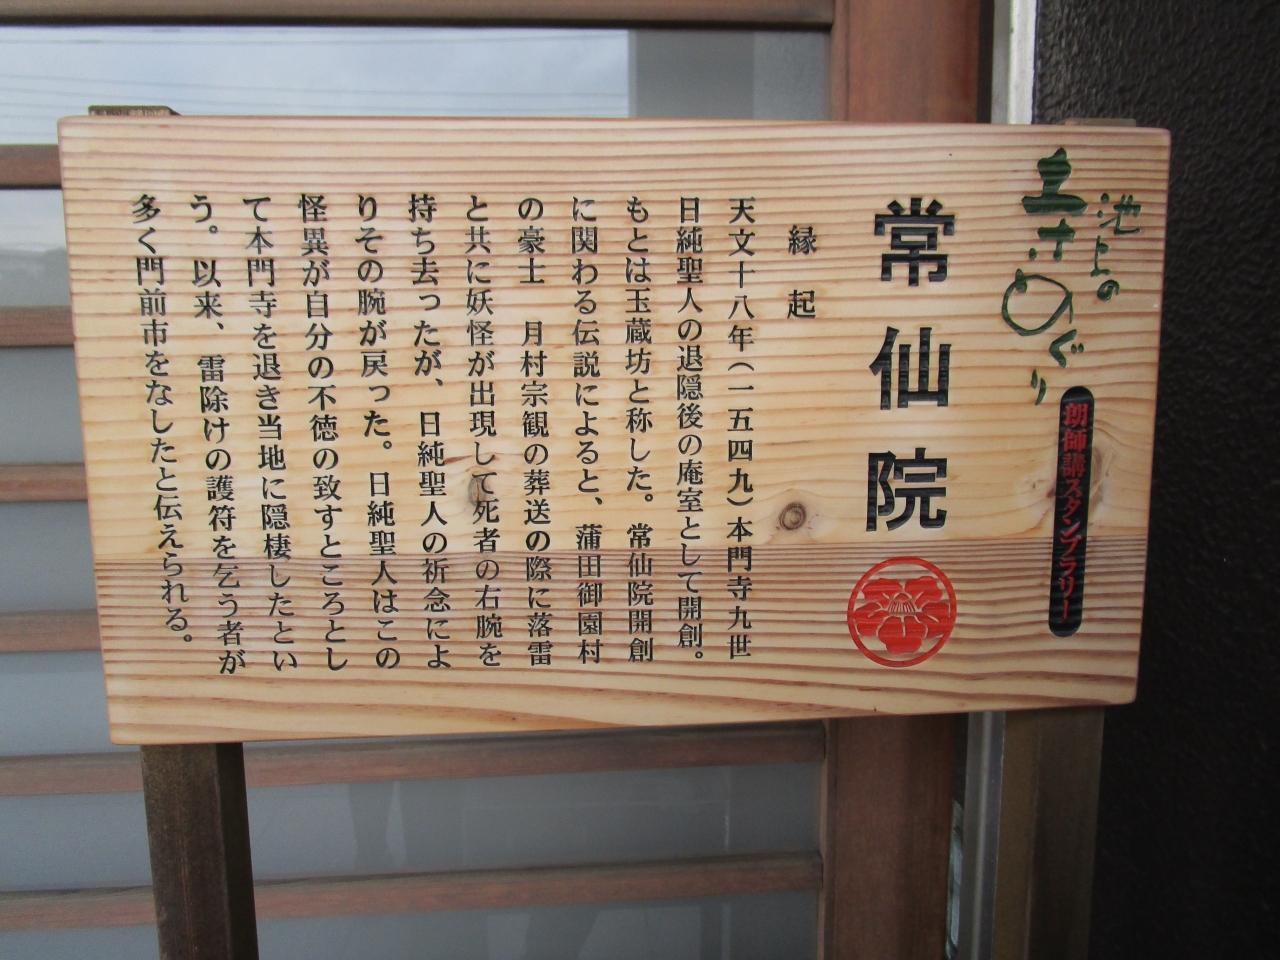 池上の
まちめぐり
朗師講スタンプラリー
常仙院
縁起
天文十八年（一五四九）本門寺九世
日純聖人の退隠後の庵室として開創。
もとは玉蔵坊と称した。常仙院開創
に関わる伝説によると、蒲田御園村
の豪士　月村宗観の葬送の際に落雷
と共に妖怪が出現して死者の右腕を
持ち去ったが、日純聖人の祈念によ
りその腕が戻った。日純聖人はこの
怪異が自分の不徳の致すところとし
て本門寺を退き当地に隠棲したとい
う。以来、雷除けの護符を乞う者が
多く門前市をなしたと伝えられる。